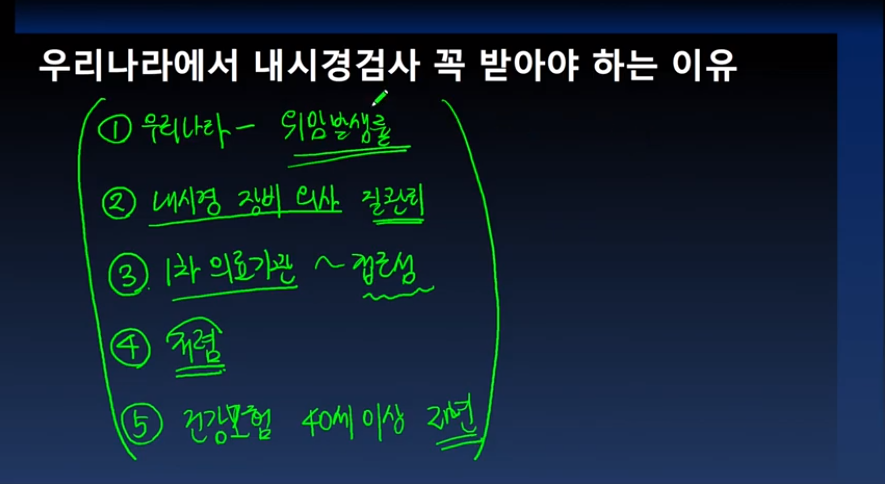 우리나라에서 내시경검사 꼭 받아야 하는 이유
① 우리나라 - 위암발생률
② 내시경 장비 의사 질관리
③ 1차 의료기관 ~ 접근성
④ 저렴
⑤ 건강보험 40세 이상 2년